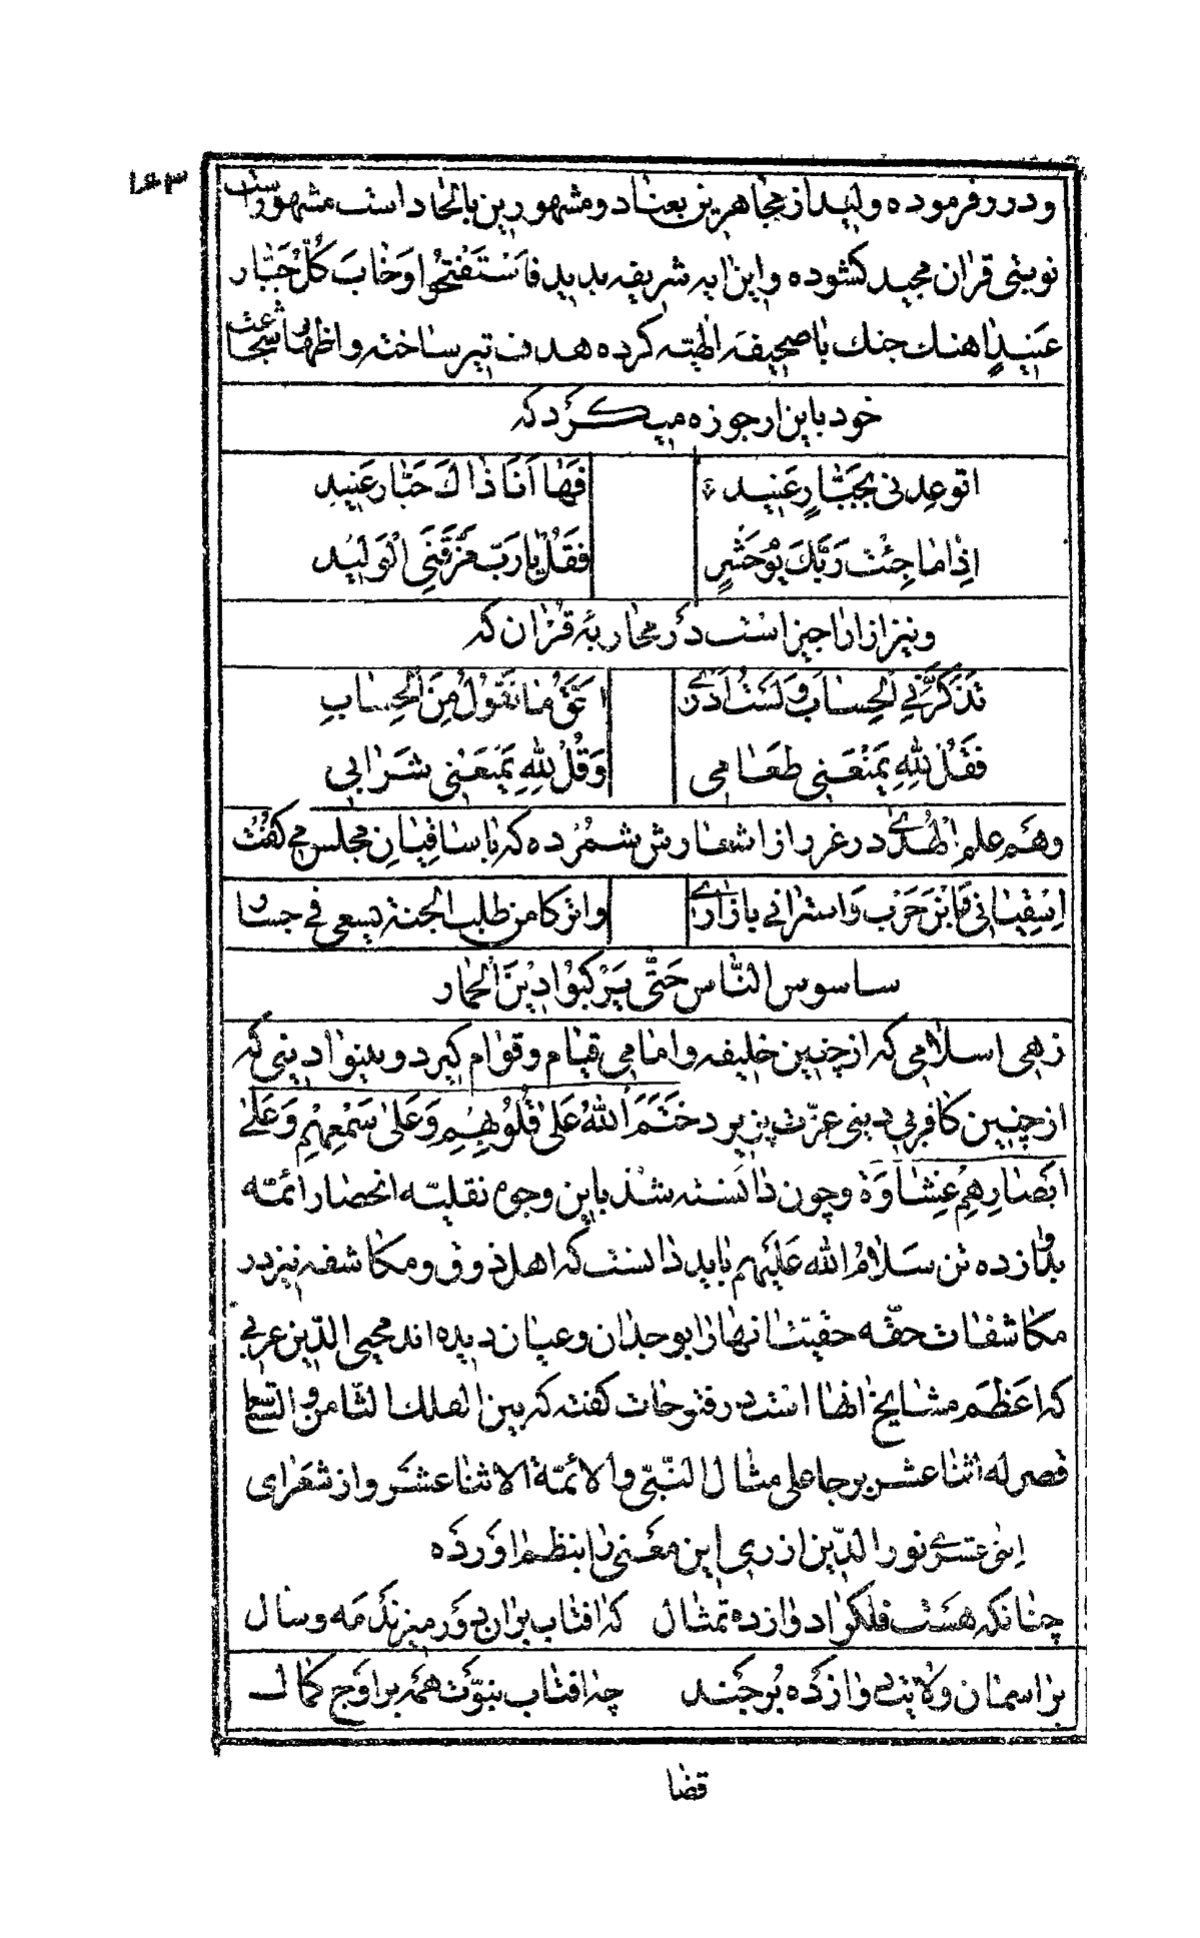 ۱۶۳
ودر رفرموده وليد از مجاهرين بعناد ومشهورين بالحاد است مشهور است
نوبتی قران مجید کشوده واین ایه شریفه بدید فاَسْتَفْتَحُوا وَخابَ کُلُّ جَبّارٍ
عَنیدٍ اهنك جنك با صحیفه الهیّته کرده هدف تیر ساخته واظهار شجاعت
خود باین ارجوزه میکرد که
اتوعِدنی بجَبّارٍ عَنیدٍ
فَها اَنَا ذاكَ جَبّار عَنیدِ
اِذاما جِئتَ رَبَّكَ یَومَ حَشرٍ
فَقُل یا رَبِّ مَزَّقَنِی الْوَلیدُ
ونیز از اراجیز است در محاربهٔ قران که
تَذَکَّرُنی الحِسابَ وَلَستُ اَدْری
اَحَقٌّ ما تَقُولُ مِنَ الحِسابِ
فَقُل لِلّهِ یَمنَعُنی طَعامی
وَقُلْ لِلّهِ یَمنَعُنی شَرابی
وهم علم الهدی در غرر از اشعارش شمرده که با ساقیان مجلس می کفت
اِسْقِیانی وَابْنَ حَرْب وَاسترانی بازاری
واترکا من طلب الجنة یسعی فی جسار
ساسوس الناس حَتّی یَرْکَبُوا دینَ الحمار
زهی اسلامی که از چنین خلیفه وامامی قیام وقوام کیرد وبینوا دینی که
از چنین کافر بی دینی عزّت پذیرد خَتَمَ اللهُ عَلی قُلُوبِهِم وَعَلی سَمْعِهِمْ وَعَلی
اَبصارِهِم غِشاوَةٌ وچون دانسته شد باین وجوه نقلیّه انحصار ائمّه
بدوازده تن سَلامُ الله عَلَیهِم باید دانست که اهل ذوق ومکاشفه نیز در
مکاشفات حقّه حقیّت انها را بوجدان وعیان دیده اند محیی الدّین عربی
که اعظم مشایخ انها است در فتوحات کفته که بین الفلك الثامن والتاسع
قصر له اثنا عشر برجا علی مثال النّبیّ والائمّة الاثنا عشر واز شعرای
اثنی عشری نور الدّین اذری این معنی را بنظم اورده
چنانکه هست فلك را دوازده تمثال که افتاب بران دور میزند مه وسال
بر اسمان ولایت دوازده برجند چه افتاب نبوّت همه بر اوج کمال
قضا